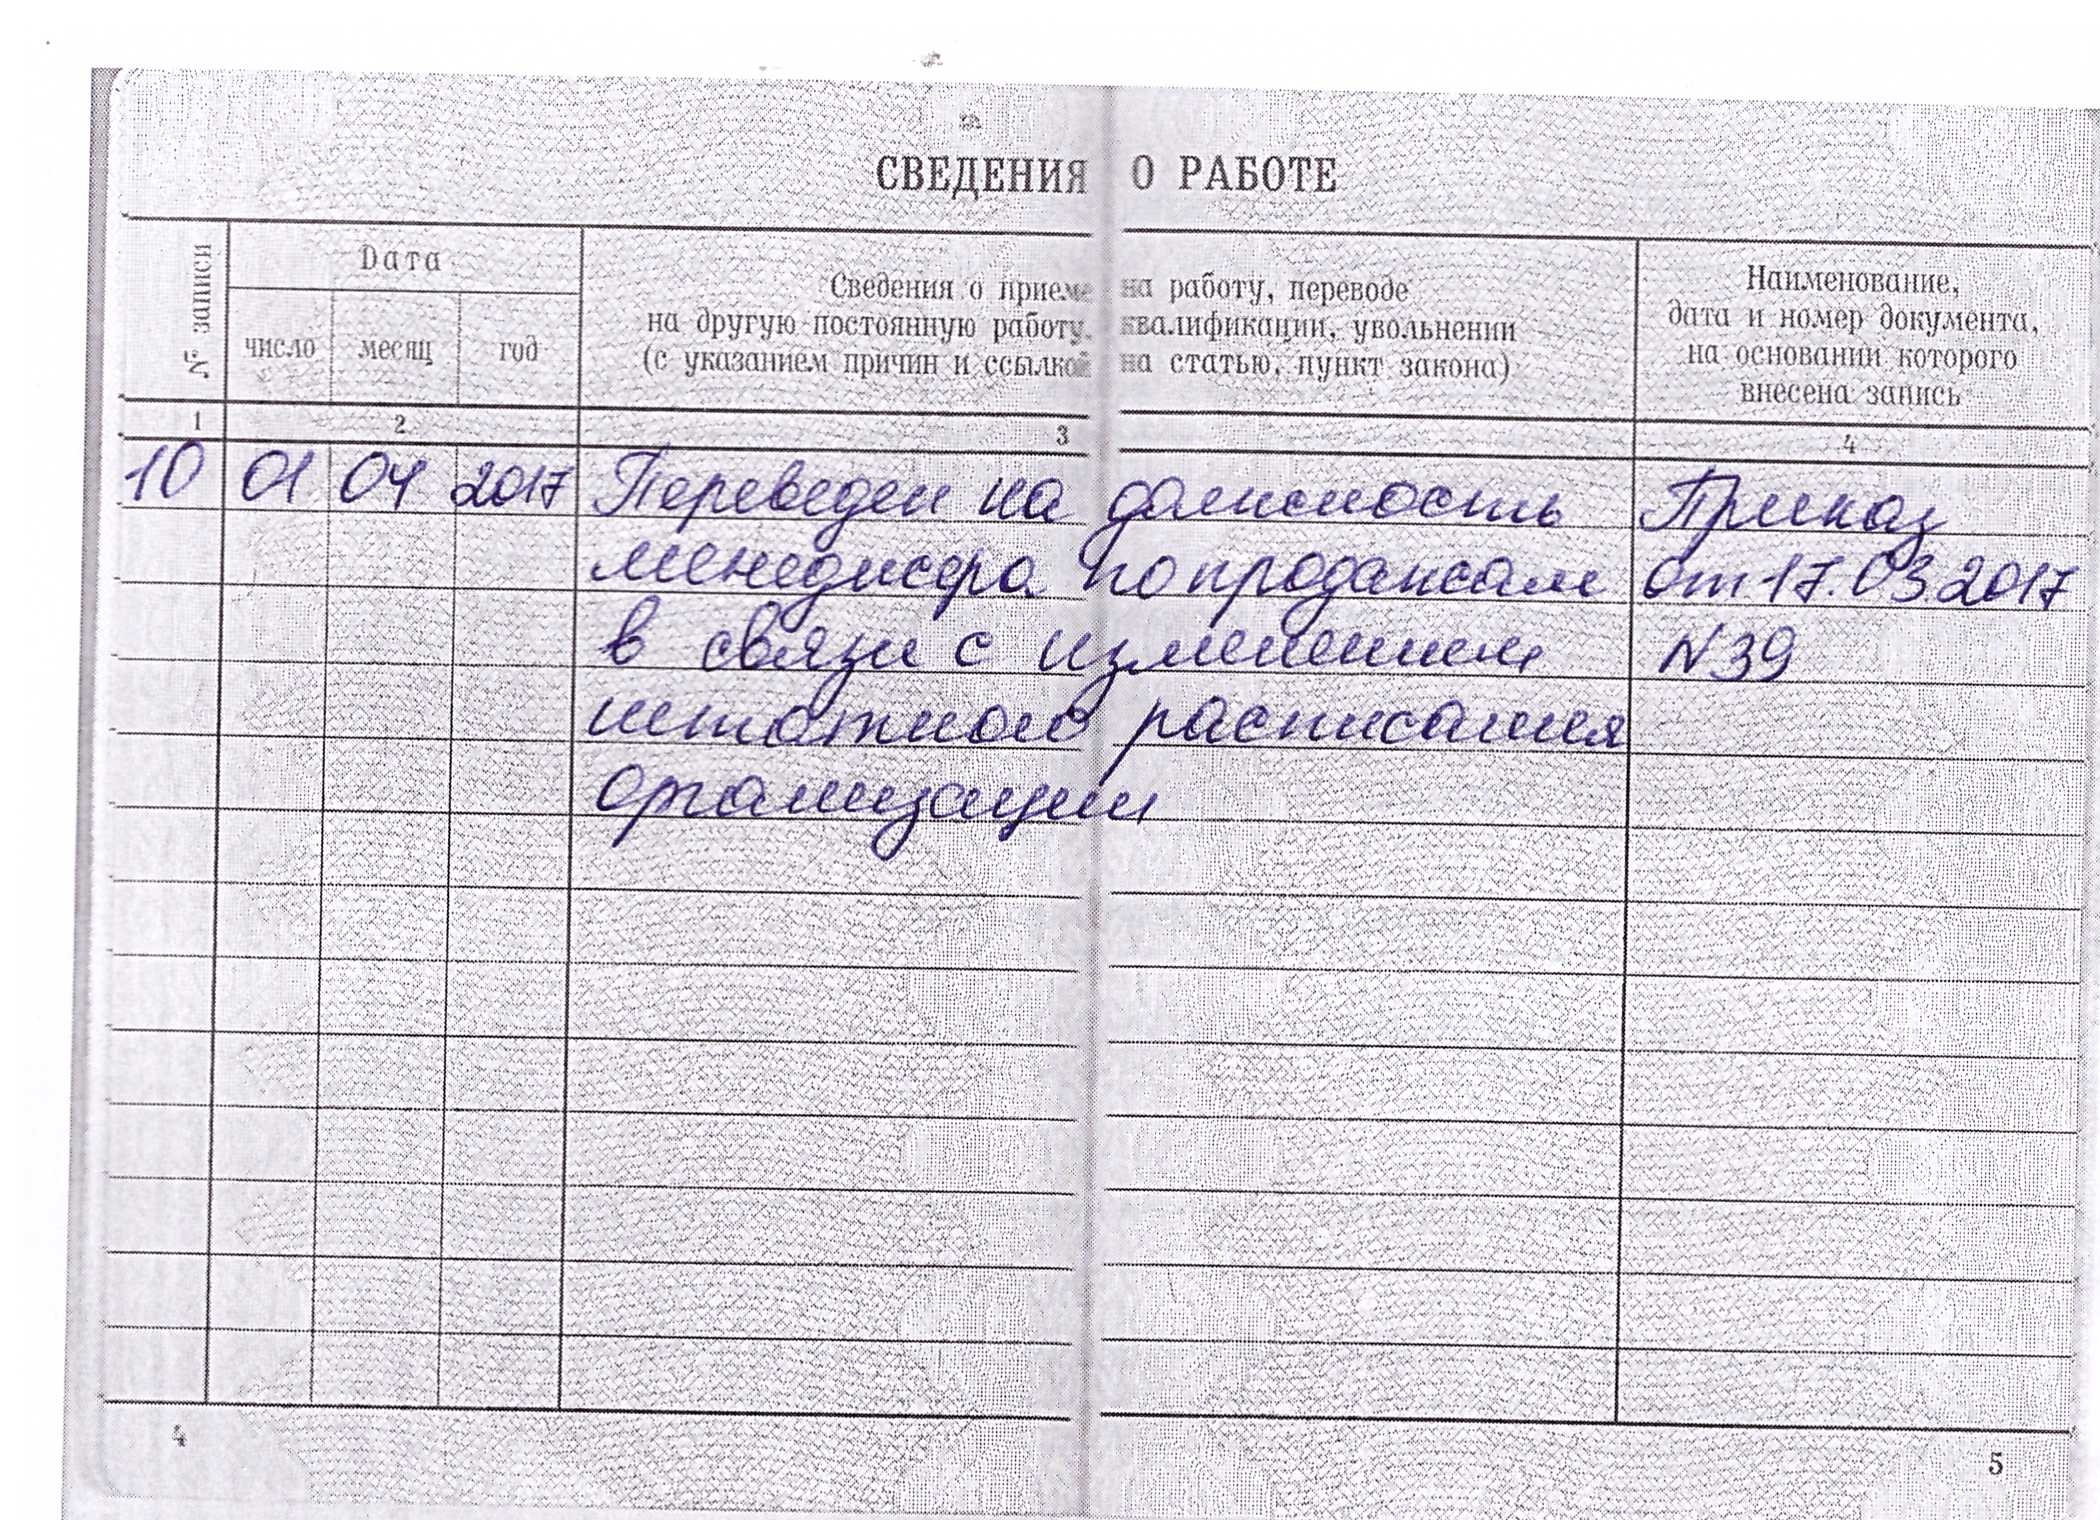 СВЕДЕНИЯ О РАБОТЕ
№ записи
Дата
число месяц год
Сведения о приеме на работу, переводе
на другую постоянную работу, квалификации, увольнении
(с указанием причин и ссылкой на статью, пункт закона)
Наименование,
дата и номер документа,
на основании которого
внесена запись
1 2 3 4
10 01 04 2017 Переведен на должность Приказ
менеджера по продажам от 17.03.2017
в связи с изменением N 39
штатного расписания
организации
4 5